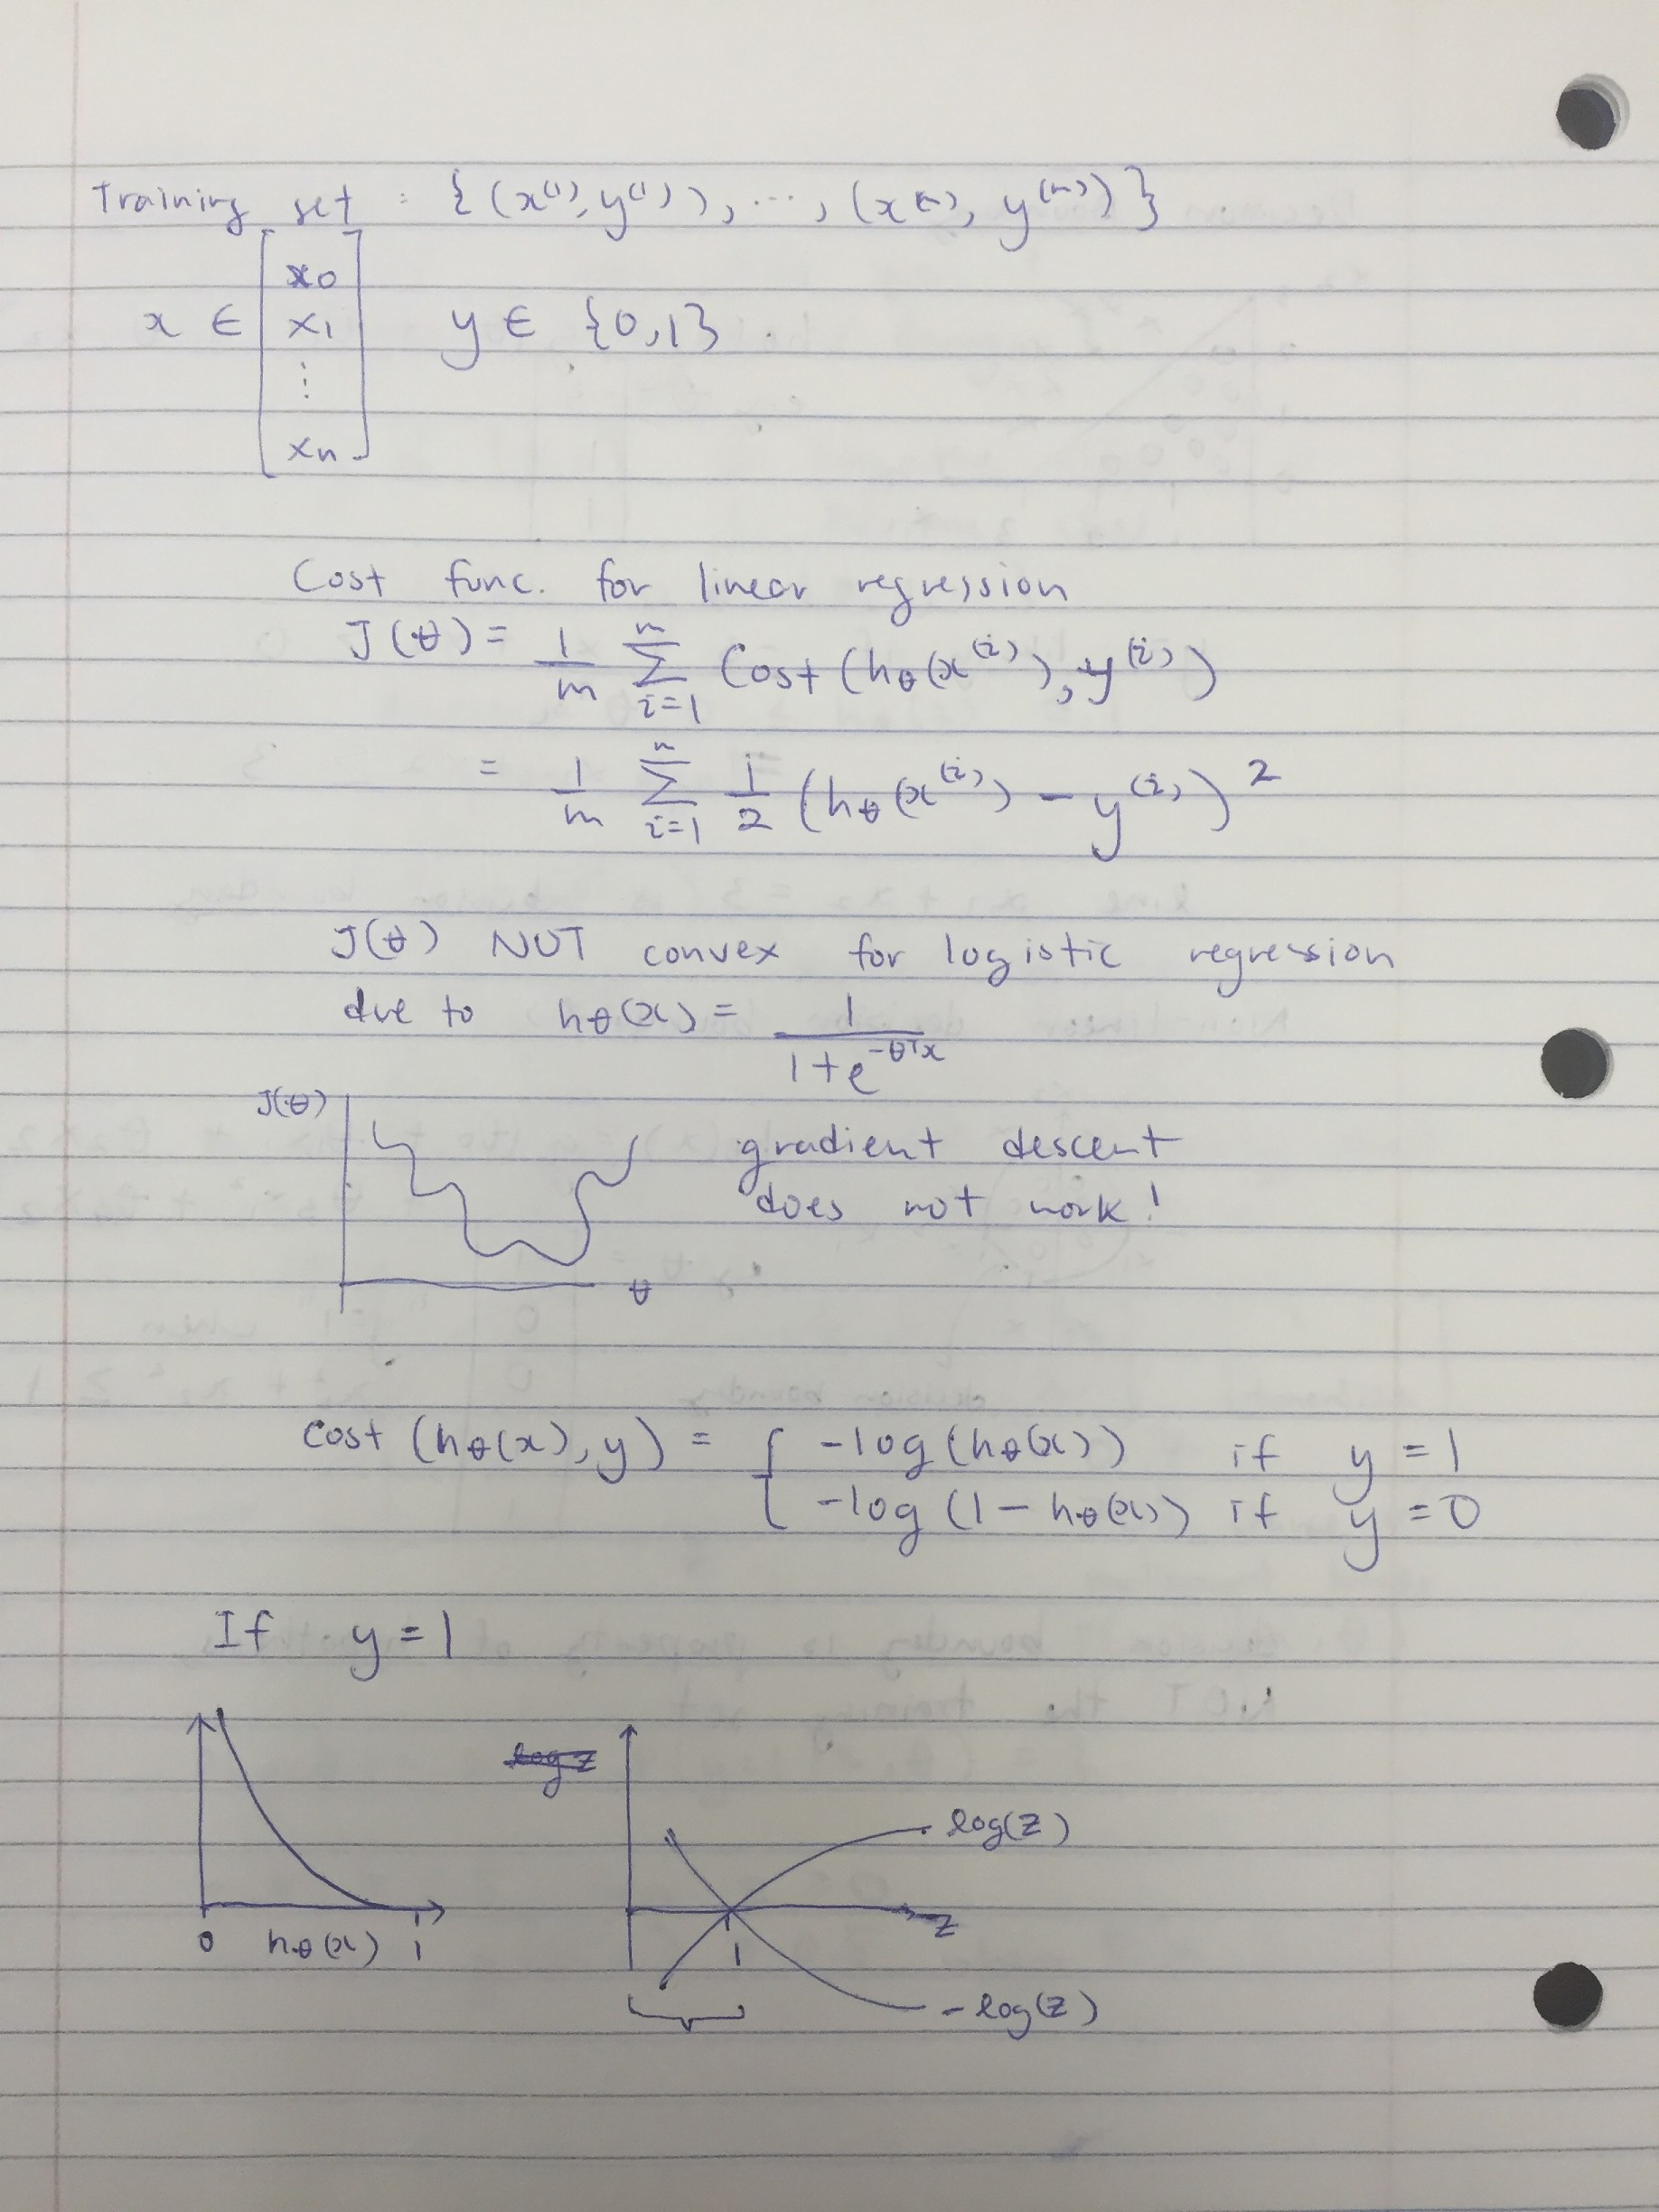 Training set : {(x⁽¹⁾, y⁽¹⁾), ..., (x⁽ᵐ⁾, y⁽ᵐ⁾)}
x ∈ [x₀ x₁ ⋮ xₙ] y ∈ {0,1}
Cost func. for linear regression
J(θ) = 1/m Σᵢ₌₁ᵐ Cost(hθ(x⁽ⁱ⁾), y⁽ⁱ⁾)
= 1/m Σᵢ₌₁ᵐ 1/2 (hθ(x⁽ⁱ⁾) - y⁽ⁱ⁾)²
J(θ) NOT convex for logistic regression
due to hθ(x) = 1/(1+e^(-θᵀx))
J(θ)
gradient descent
does not work!
θ
Cost (hθ(x), y) = { -log(hθ(x)) if y = 1
-log(1-hθ(x)) if y = 0
If y = 1
log z
log(z)
z
0 hθ(x) 1
1
-log(z)